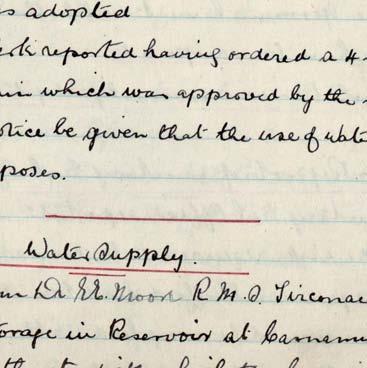 s adopted
erk reported having ordered a 4-
in which was approved by the
otice be given that the use of wat
poses.
Water Supply.
m Dr E.E. Moore R M. S. Tirconae
orage in Reservoir at Carnamu